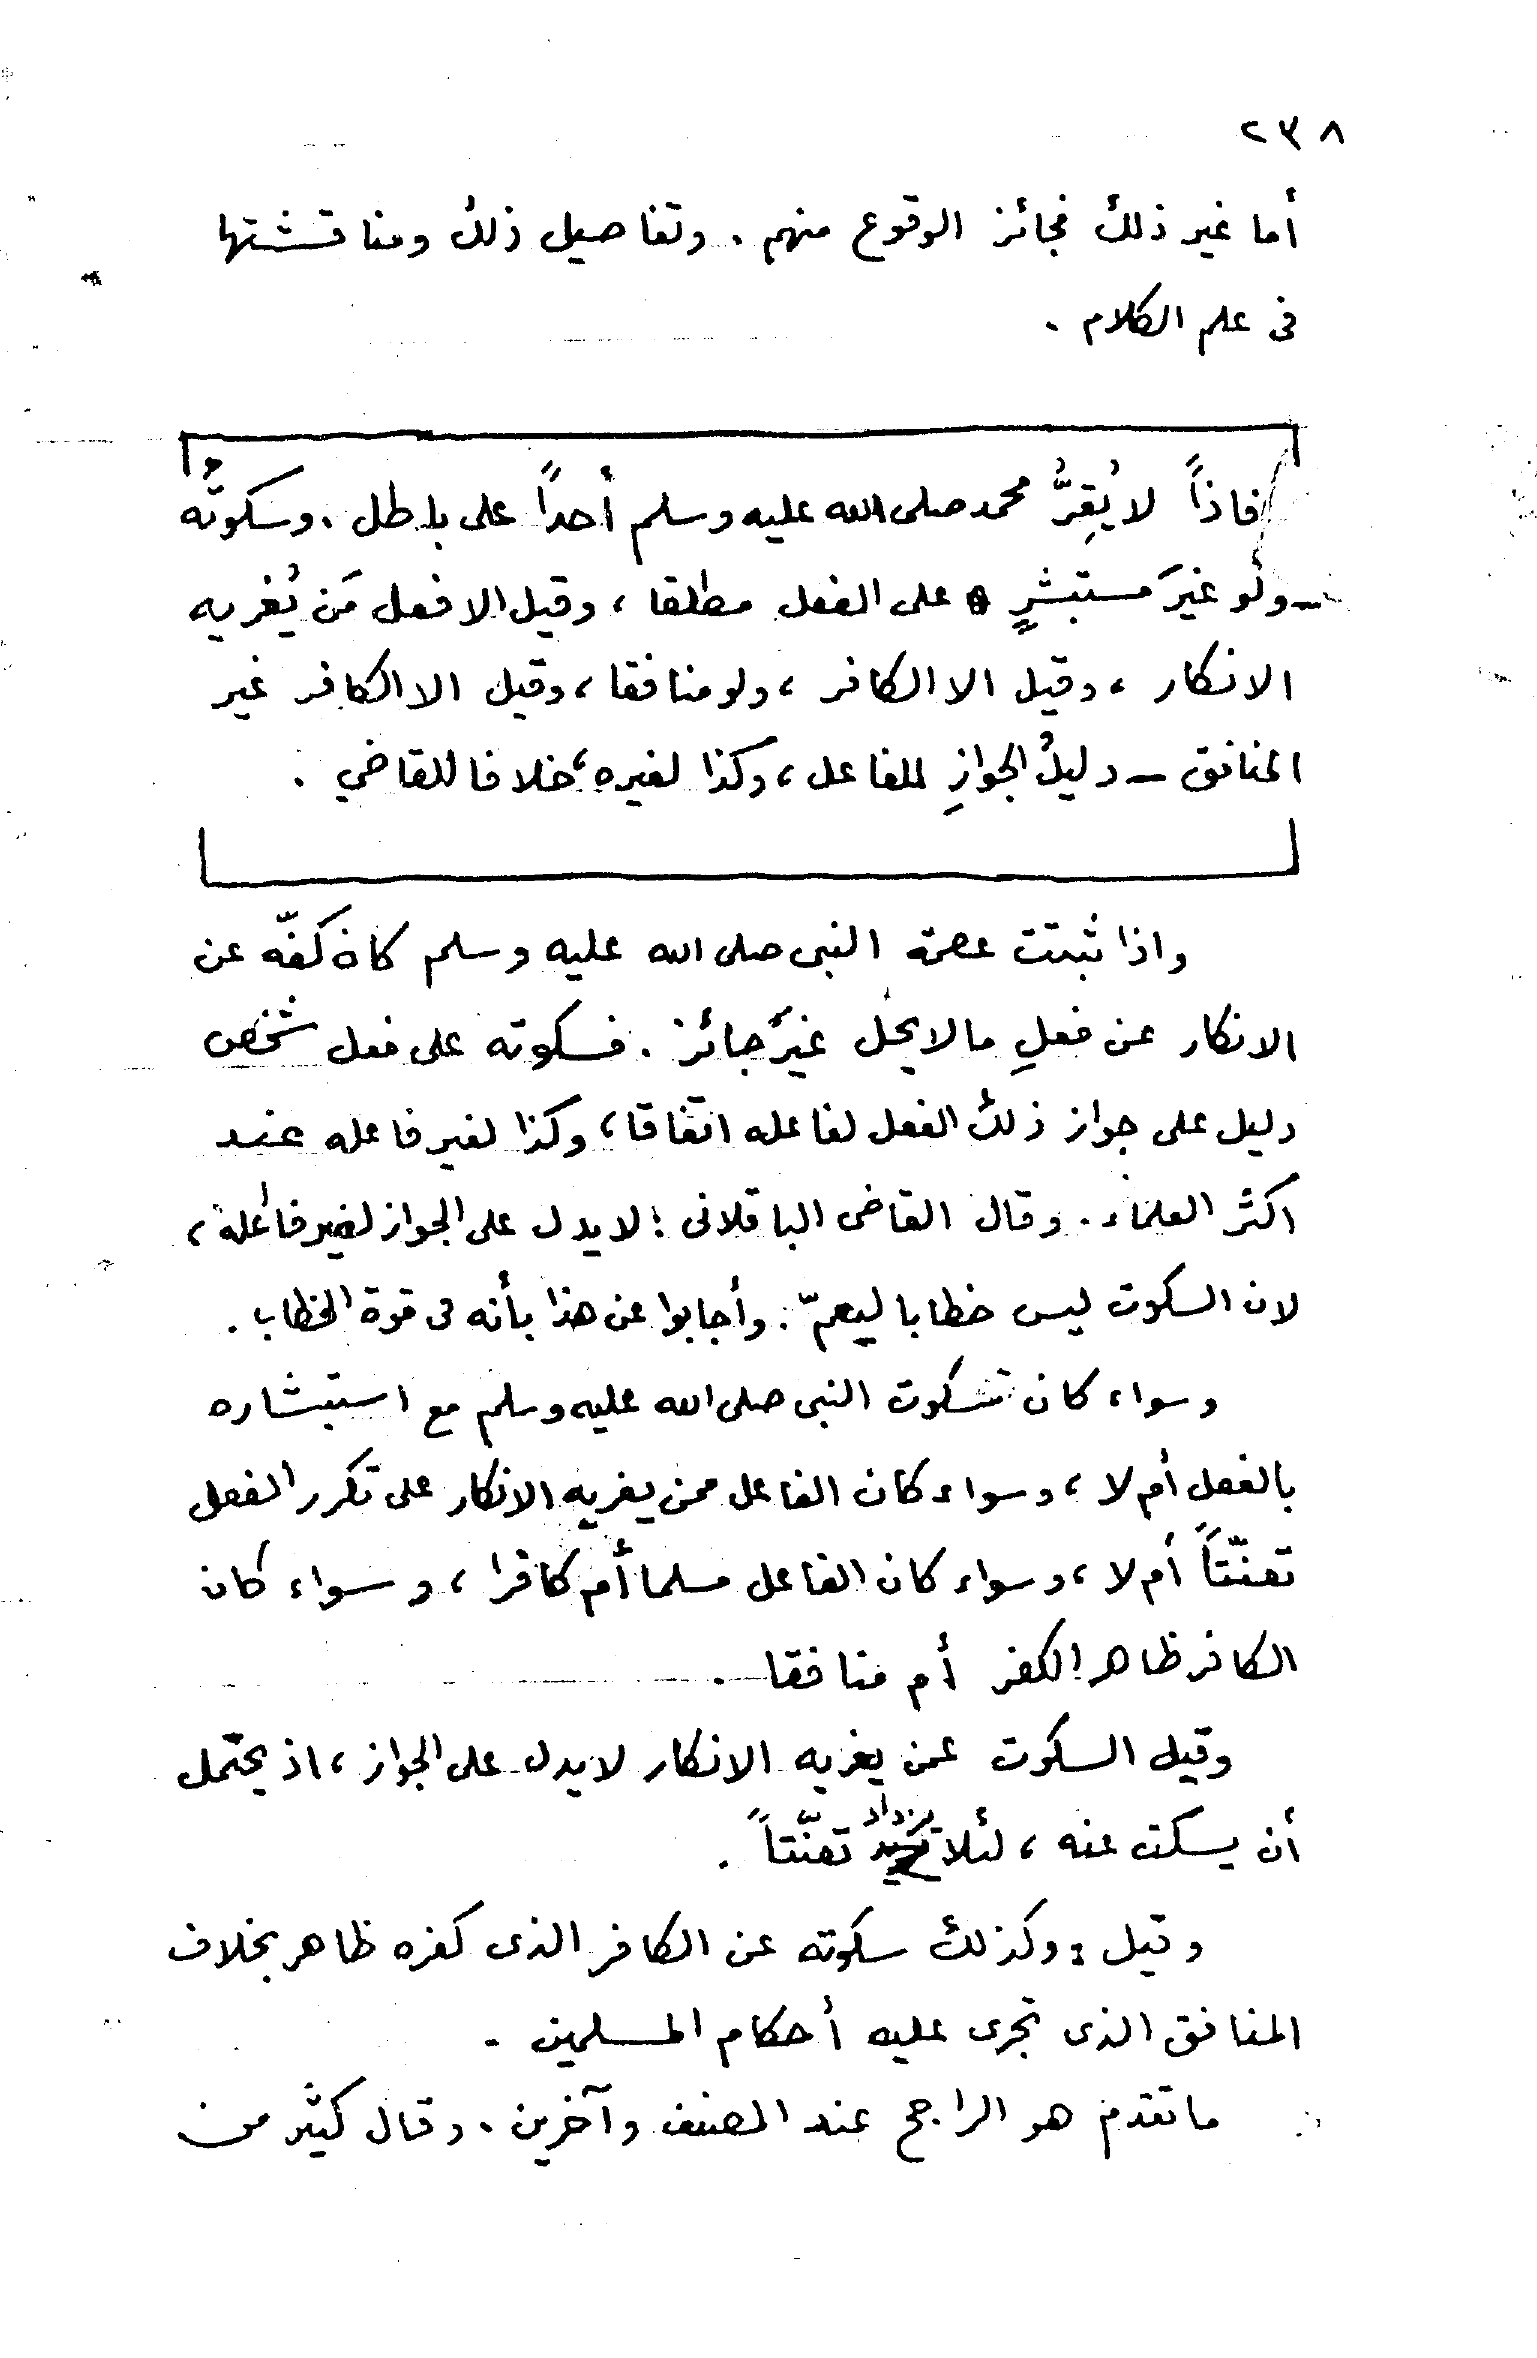 ٢٣٨
أما غير ذلك فجائز الوقوع منهم . وتفاصيل ذلك ومناقشتها
فى علم الكلام .
فاذاً لا يُقِرُّ محمد صلى الله عليه وسلم أحداً على باطل . وسكوتُه
ـ ولو غيرَ مستبشرٍ على الفعل مطلقا ، وقيل الا فعل مَن يُغريه
الانكار ، وقيل الا الكافر ، ولو منافقا ، وقيل الا الكافر غير
المنافق ـ دليلُ الجوازِ للفاعل ، وكذا لغيره ، خلافا للقاضي .
واذا ثبتت عصمة النبى صلى الله عليه وسلم كان كفّه عن
الانكار عن فعلِ ما لا يحل غيرَ جائز . فسكوته على فعل شخص
دليل على جواز ذلك الفعل لفاعله اتفاقا ، وكذا لغير فاعله عند
اكثر العلماء . وقال القاضى الباقلانى : لا يدل على الجواز لغير فاعله ،
لان السكوت ليس خطابا ليعمّ . وأجابوا عن هذا بأنه فى قوة الخطاب .
وسواء كان سكوت النبى صلى الله عليه وسلم مع استبشاره
بالفعل أم لا ، وسواء كان الفاعل ممن يغريه الانكار على تكرر الفعل
تعنّتاً أم لا ، وسواء كان الفاعل مسلما أم كافرا ، وسواء كان
الكافر ظاهر الكفر أم منافقا .
وقيل السكوت عمن يغريه الانكار لا يدل على الجواز ، اذ يحتمل
أن يسكت عنه ، لئلا يزداد تعنّتاً .
وقيل : وكذلك سكوته عن الكافر الذى كفره ظاهر بخلاف
المنافق الذى تجرى عليه أحكام المسلمين .
ما تقدم هو الراجح عند المصنف وآخرين . وقال كثير من